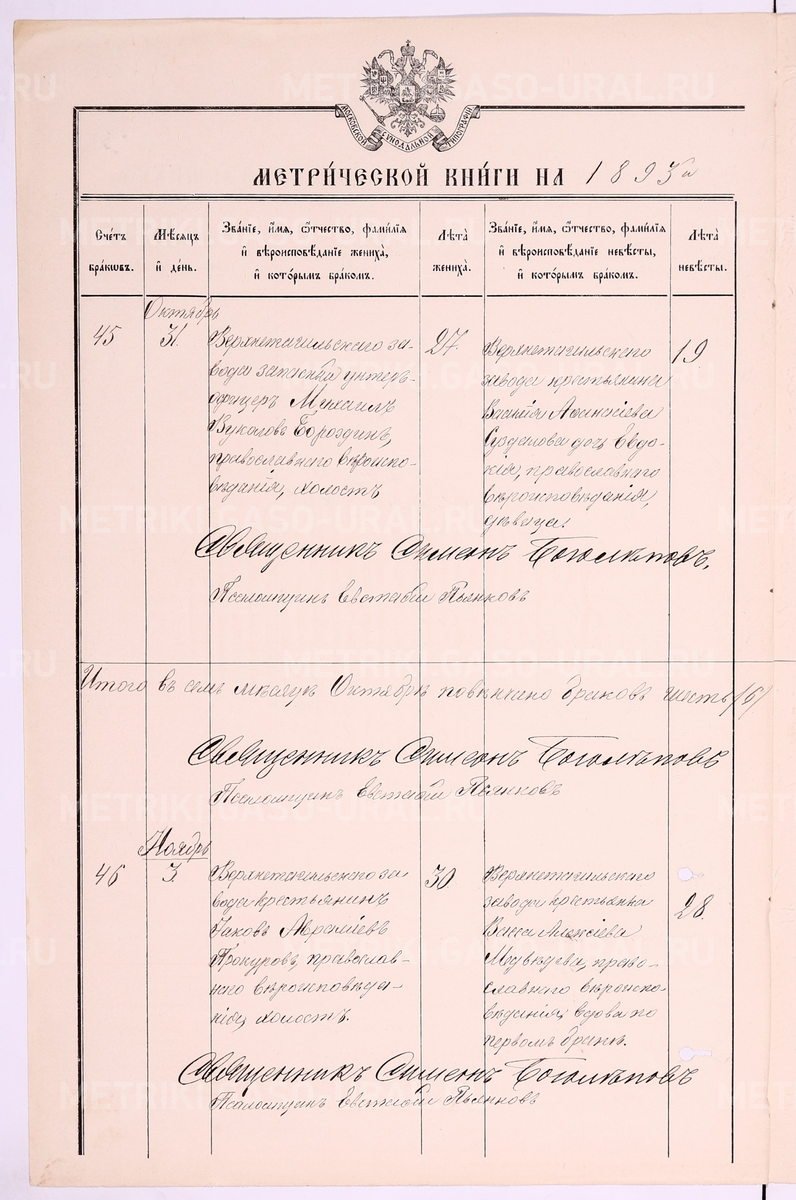 МОСКОВСКОЙ СѴНОДАЛЬНОЙ ТИПОГРАФІИ
МЕТРИ́ЧЕСКОЙ КНИ́ГИ НА 1893 г
Сче́тъ бра́кѡвъ.
Мѣ́сѧцъ и҆ де́нь.
Зва́нїе, и҆́мѧ, ѻ҆́тчество, фами́лїѧ и҆ вѣроисповѣ́данїе жениха̀, и҆ кото́рымъ бра́комъ.
Лѣта̀ жениха̀.
Зва́нїе, и҆́мѧ, ѻ҆́тчество, фами́лїѧ и҆ вѣроисповѣ́данїе невѣ́сты, и҆ кото́рымъ бра́комъ.
Лѣта̀ невѣ́сты.
Октябрь
45
31.
Верхнетагильскаго за-
вода запасный унтеръ-
офицеръ Михаилъ
Вуколовъ Бороздинъ,
православнаго вѣроиспо-
вѣданія, холостъ
27.
Верхнетагильскаго
завода крестьянина
Суздалова дочь Евдо-
кія, православнаго
вѣроисповѣданія,
дѣвица.
19
Священникъ Симеонъ Боголѣповъ.
Псаломщикъ Пьянковъ
Итого въ семъ мѣсяцѣ Октябрѣ повѣнчано браковъ шесть (6)
Священникъ Симеонъ Боголѣповъ
Псаломщикъ Пьянковъ
Ноябрь
46
3.
Верхнетагильскаго за-
вода крестьянинъ
Іаковъ
православ-
наго вѣроисповѣда-
нія, холостъ.
30
Верхнетагильскаго
завода крестьянка
Алексіева
право-
славнаго вѣроиспо-
вѣданія, вдова по
первомъ бракѣ.
28.
Священникъ Симеонъ Боголѣповъ
Псаломщикъ Пьянковъ
METRIKI.GASO-URAL.RU